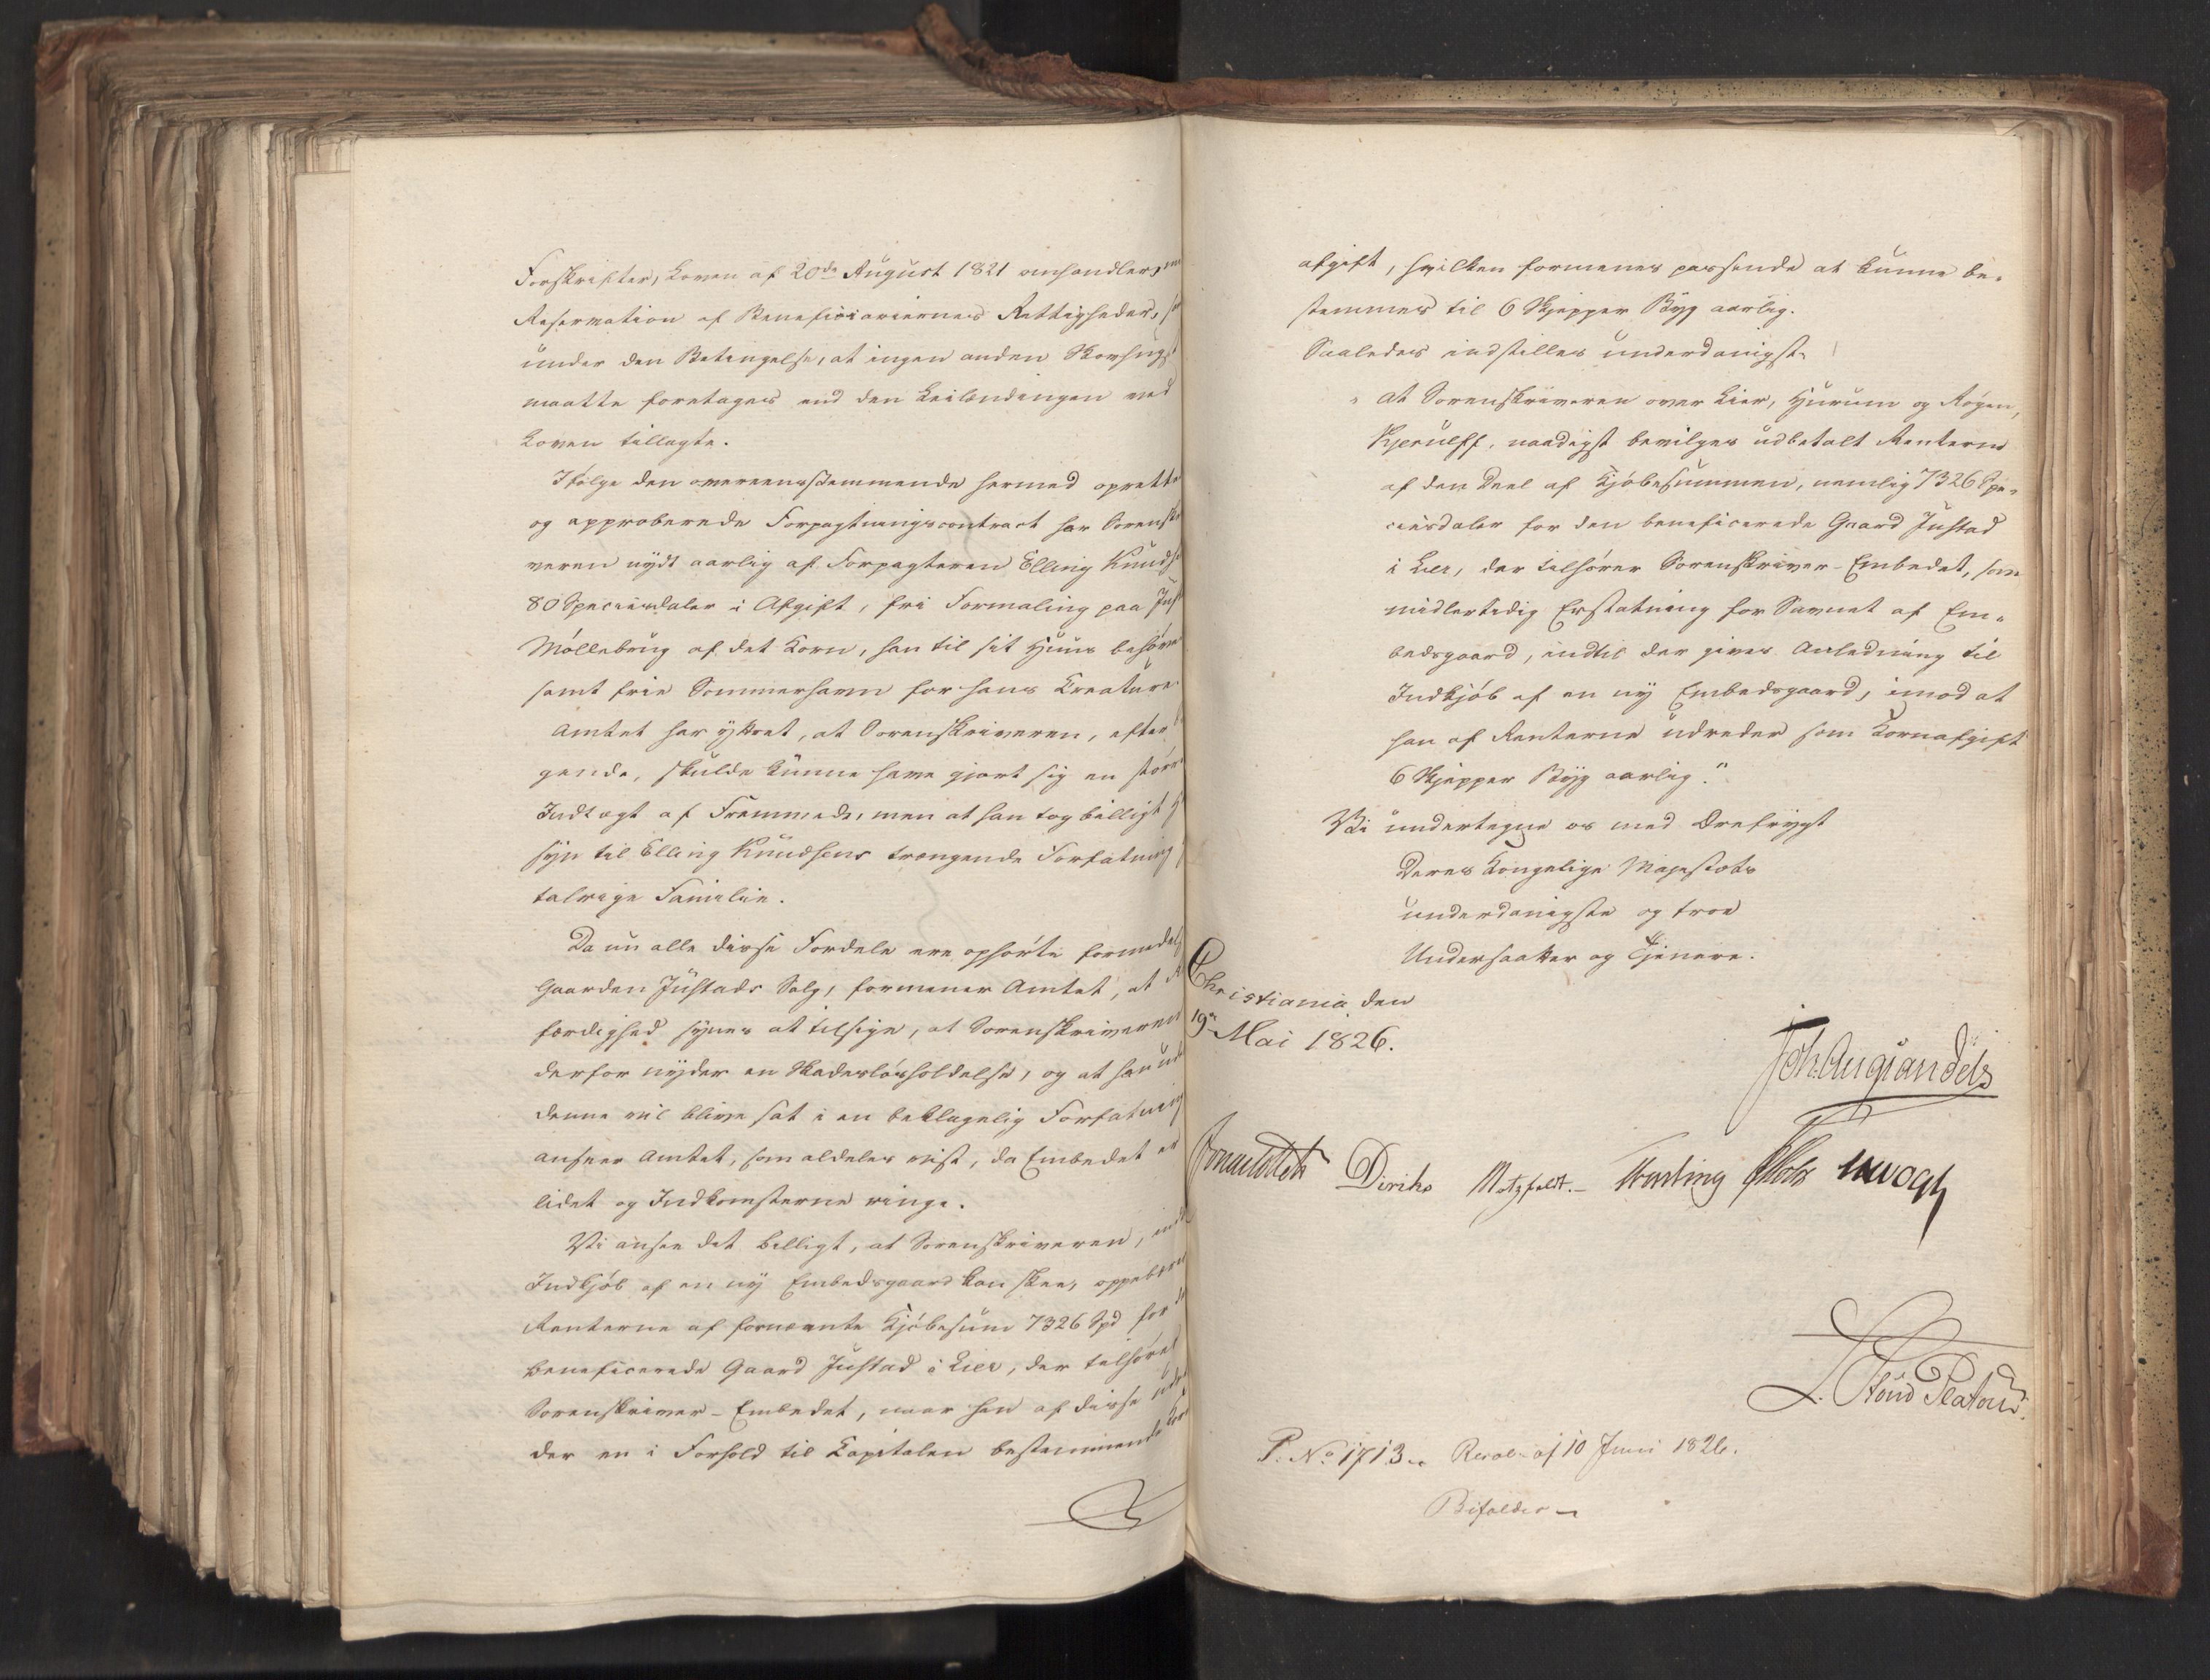 Forskrifter, Loven af 20de August 1821 omhandler,
Reservation af Beneficiariernes Rettigheder,
under den Betingelse, at ingen anden Skovhugst
maatte foretages end den Leilændingen ved
Loven tillagte.
Ifølge den overeensstemmende hermed oprettede
og approberede Forpagtningscontract har Sorenskri
veren nydt aarlig af Forpagteren Elling Knuds
80 Speciesdaler i Afgift, fri Formaling paa Just
Møllebrug af det Korn, han til sit Huus behøve
samt frie Sommerhavn for hans Creature.
Amtet har yttret, at Sorenskriveren, efter
gende, skulde kunne have gjort sig en større
Indtægt af Fremmede, men at han tog billigt H
syn til Elling Knudsens trængende Forfatning
talrige Familie.
Da nu alle disse Fordele ere ophørte formedelst
Gaarden Justads Salg, formener Amtet, at
færdighed synes at tilsige, at Sorenskriveren
derfor nyder en Skadesløsholdelse, og at han uden
denne vil blive sat i en beklagelig Forfatning
anseer Amtet, som aldeles vist, da Embedet er
lidet og Indkomsterne ringe.
Vi ansee det billigt, at Sorenskriveren, indtil
Indkjøb af en ny Embedsgaard kan skee, oppebærer
Renterne af fornævnte Kjøbesum 7326 Spd for
beneficerede Gaard Justad i Lier, der tilhører
Sorenskriver-Embedet, naar han af disse udre
der en i Forhold til Capitalen bestemmende Korn
afgift, hvilken formenes passende at kunne be-
stemmes til 6 Skjepper Byg aarlig.
Saaledes indstilles underdanigst:
"At Sorenskriveren over Lier, Hurum og Røgen,
Kjerulff, naadigst bevilges udbetalt Renterne
af den Deel af Kjøbesummen, nemlig 7326 Spe-
ciesdaler for den beneficerede Gaard Justad
i Lier, der tilhører Sorenskriver-Embedet, som
midlertidig Erstatning for Savnet af Em-
bedsgaard, indtil der gives Anledning til
Indkjøb af en ny Embedsgaard, imod at
han af Renterne udreder som Kornafgift
6 Skjepper Byg aarlig."
Vi undertegne os med Ærefrygt
Deres Kongelige Majestæts
underdanigste og troe
Undersaatter og Tjenere.
Christiania den
19de Mai 1826.
Joh. Aug Sandels
Diriks Motzfeldt.- JHVogt
L. Stoud Platou.
P. No 1713. Resol. af 10 Juni 1826.
Bifaldes